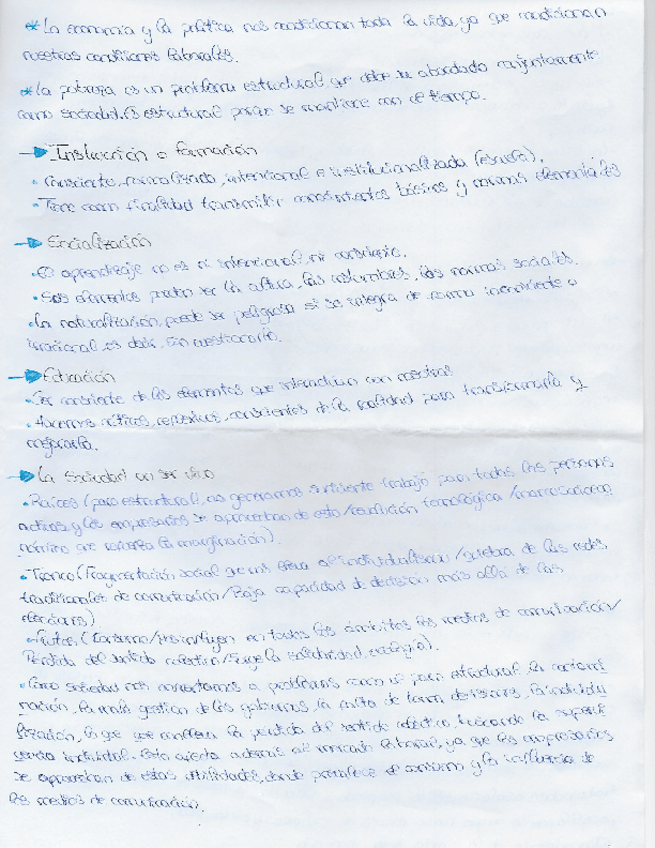 * La economía y la política nos condicionan toda la vida, ya que condicionan
nuestras condiciones laborales.
* La pobreza es un problema estructural que debe ser abordado conjuntamente
como sociedad. Es estructural porque se mantiene con el tiempo.
→ Instrucción o formación
• Consciente, formalizado, intencional e institucionalizada (escuela).
• Tiene como finalidad transmitir conocimientos básicos y normas elementales
→ Socialización
• El aprendizaje no es ni intencional, ni consciente.
• Sus elementos pueden ser la cultura, las costumbres, las normas sociales.
• La naturalización, puede ser peligrosa si se integra de forma inconsciente o
irracional, es decir, sin cuestionarlo.
→ Educación
• Ser consciente de los elementos que interactúan con nosotros
• Hacernos críticos, reflexivos, conscientes de la realidad para transformarla y
mejorarla.
→ La sociedad un ser vivo
• Raíces (paro estructural, no generamos suficiente trabajo para todas las personas
activas y los empresarios se aprovechan de esto/revolución tecnológica/
que refuerza la marginación).
• Tronco (Fragmentación social que nos lleva al individualismo/quiebra de las redes
tradicionales de comunicación/Baja capacidad de decisión más allá de las
elecciones)
• Frutos (Consumo/nos influyen en todos los ámbitos los medios de comunicación/
Pérdida del sentido colectivo/Surge la solidaridad, ecología).
• Como sociedad nos enfrentamos a problemas como el paro estructural, la
la mala gestión de los gobiernos, la falta de toma decisiones, la individua
lización, lo que conlleva la pérdida del sentido colectivo buscando la
individual. Esto afecta además al mercado laboral, ya que los empresarios
se aprovechan de estas utilidades, donde prevalece el consumo y la influencia de
los medios de comunicación.